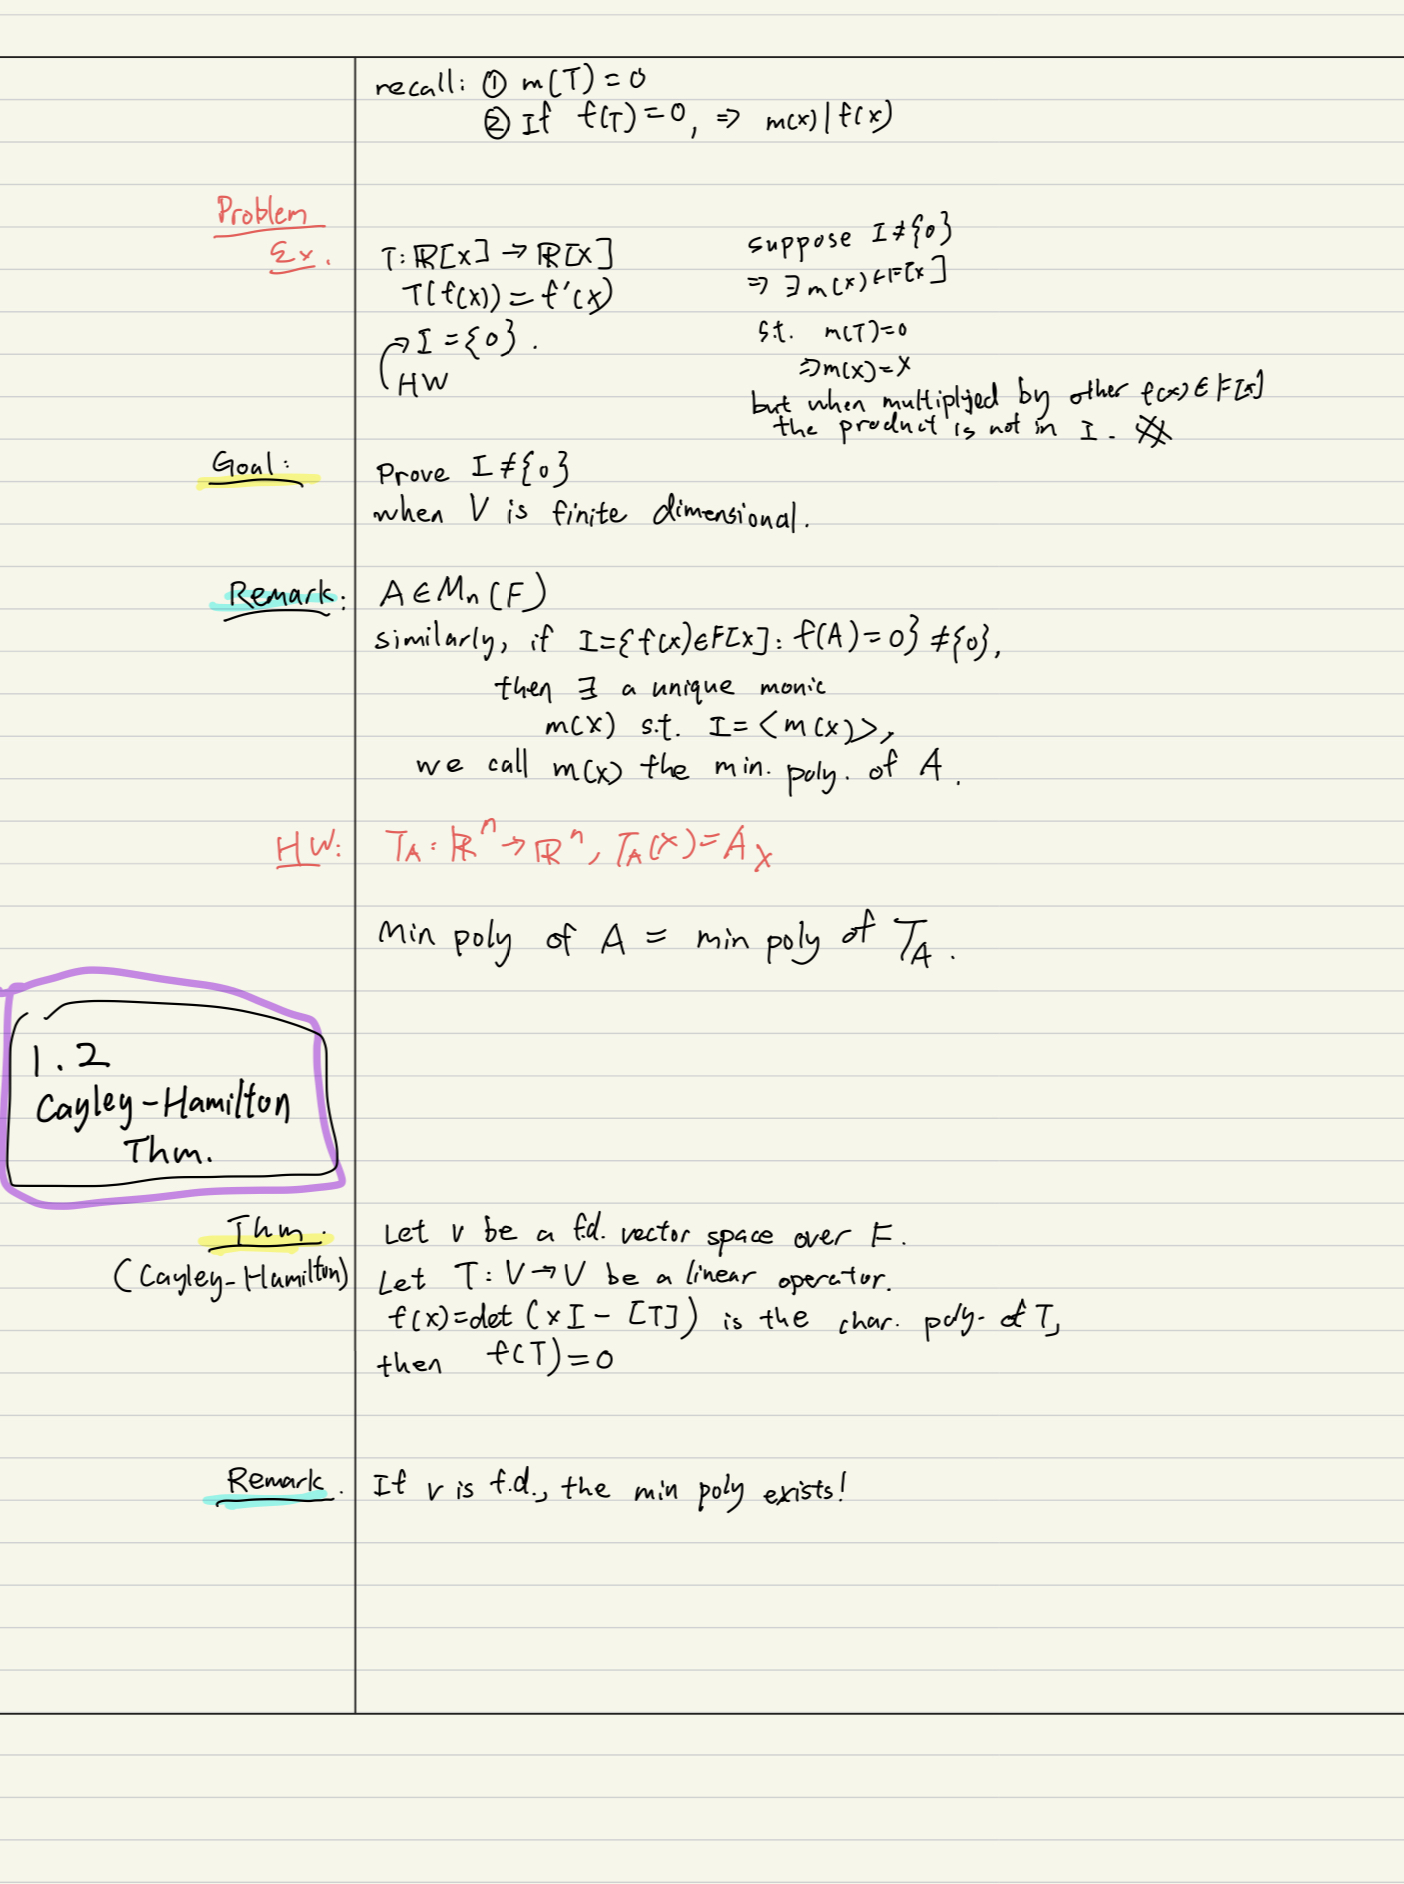 recall: ① m(T) = 0
② If f(T) = 0, ⇒ m(x) | f(x)
Problem
Ex.
T: ℝ[x] → ℝ[x]
T(f(x)) = f'(x)
→ I = {0}.
HW
suppose I ≠ {0}
⇒ ∃ m(x) ∈ F[x]
s.t. m(T)=0
⇒ m(x) = x
but when multiplied by other f(x) ∈ F[x]
the product is not in I. ※
Goal:
Prove I ≠ {0}
when V is finite dimensional.
Remark:
A ∈ Mn (F)
similarly, if I = {f(x) ∈ F[x] : f(A) = 0} ≠ {0},
then ∃ a unique monic
m(x) s.t. I = <m(x)>,
we call m(x) the min. poly. of A.
HW:
T_A : ℝ^n → ℝ^n, T_A(x) = Ax
Min poly of A = min poly of T_A.
1.2
Cayley-Hamilton
Thm.
Thm.
(Cayley-Hamilton)
Let V be a f.d. vector space over F.
Let T: V → V be a linear operator.
f(x) = det (xI - [T]) is the char. poly. of T,
then f(T) = 0
Remark.
If V is f.d., the min poly exists!